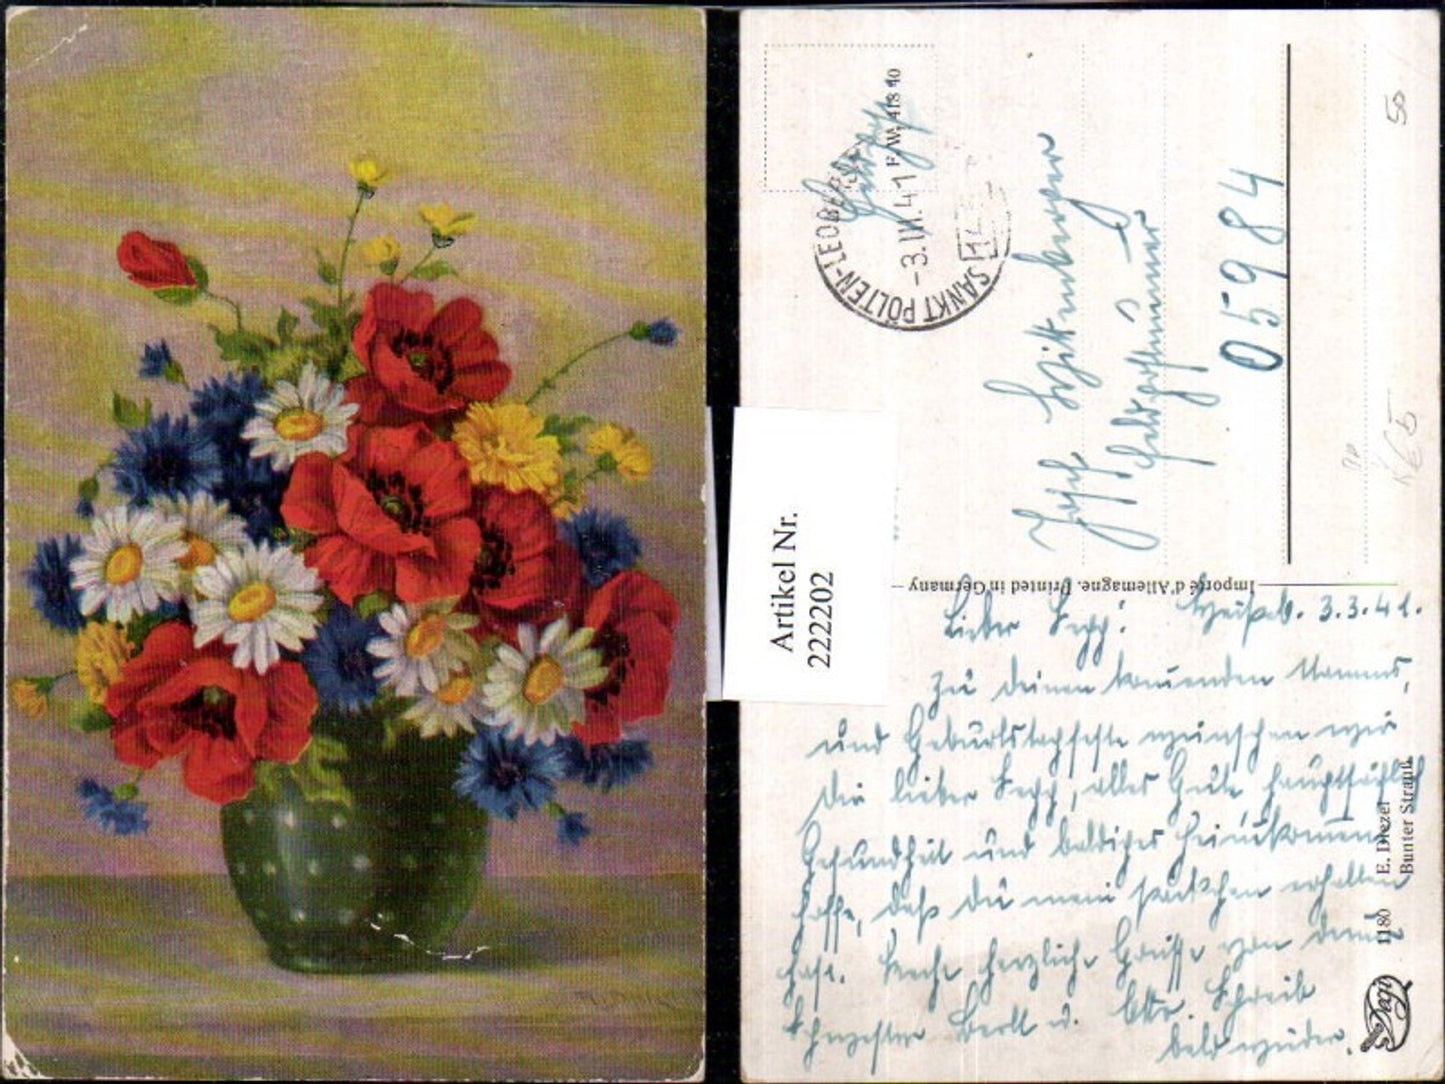 Artikel Nr.
2222202
SANKT PÖLTEN-LEOBE
-3.III.41
F. W. 418 40
Feldpost
Josef
Feldpostnummer
05984
58
Importé d'Allemagne. Printed in Germany
Lieber Sepp! 3.3.41.
Zu deinem kommenden Namens,
und Geburtstagsfeste wünschen wir
dir lieber Sepp, alles Gute hauptsächlich
Gesundheit und baldiges Heimkommen
hoffe, daß du mein Päckchen erhalten
hast. Recht herzliche Grüsse von deiner
Schwester Berta u. Schreib
bald wieder.
1180 E. Diezel
Bunter Strauß